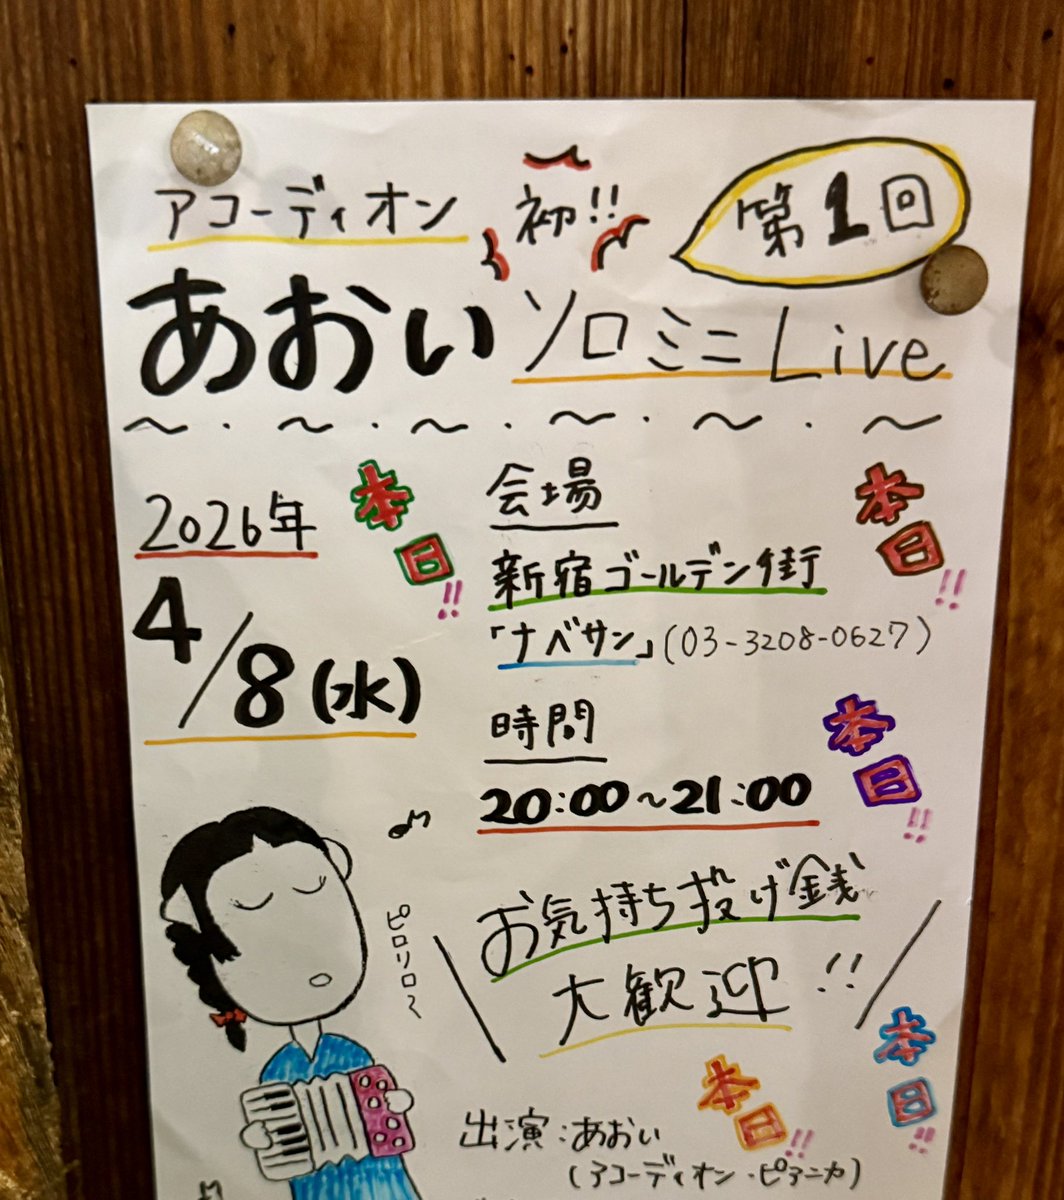 アコーディオン 初!! 第1回
あおい ソロミニLive
2026年
4/8(水)
本日!!
会場
本日!!
新宿ゴールデン街
「ナベサン」(03-3208-0627)
時間
20:00~21:00
本日!!
お気持ち投げ銭
大歓迎!!
ピロリロ~
本日!!
本日!!
出演:あおい
(アコーディオン・ピアニカ)